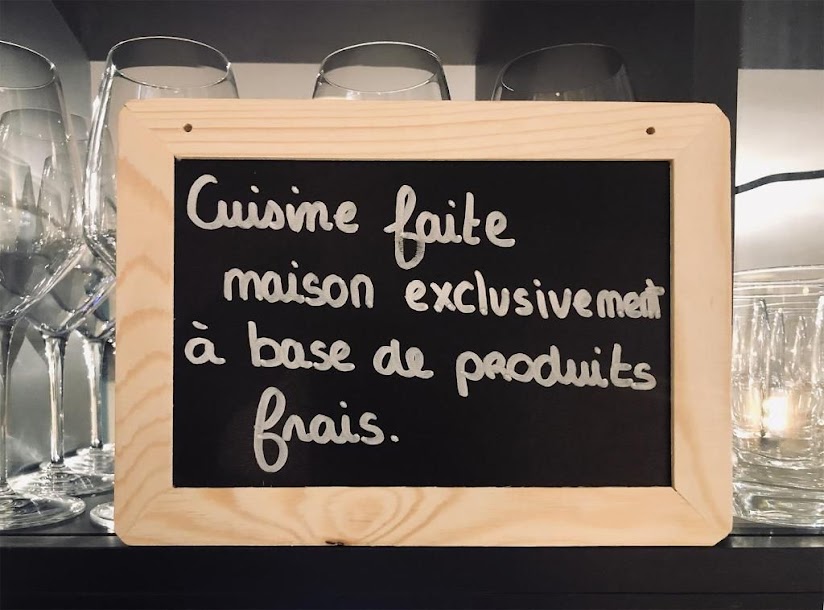 Cuisine faite
maison exclusivement
à base de produits
frais.